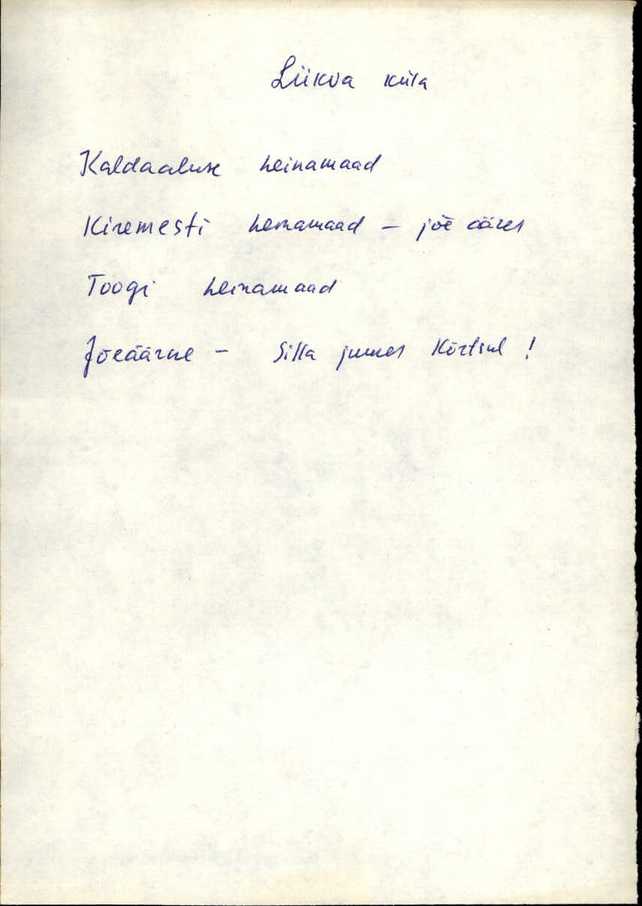 Liikva küla
Kaldaaluse heinamaad
Kiremesti heinamaad – jõe ääres
Toogi heinamaad
Jõeäärne – Silla juures Kõrtsul !